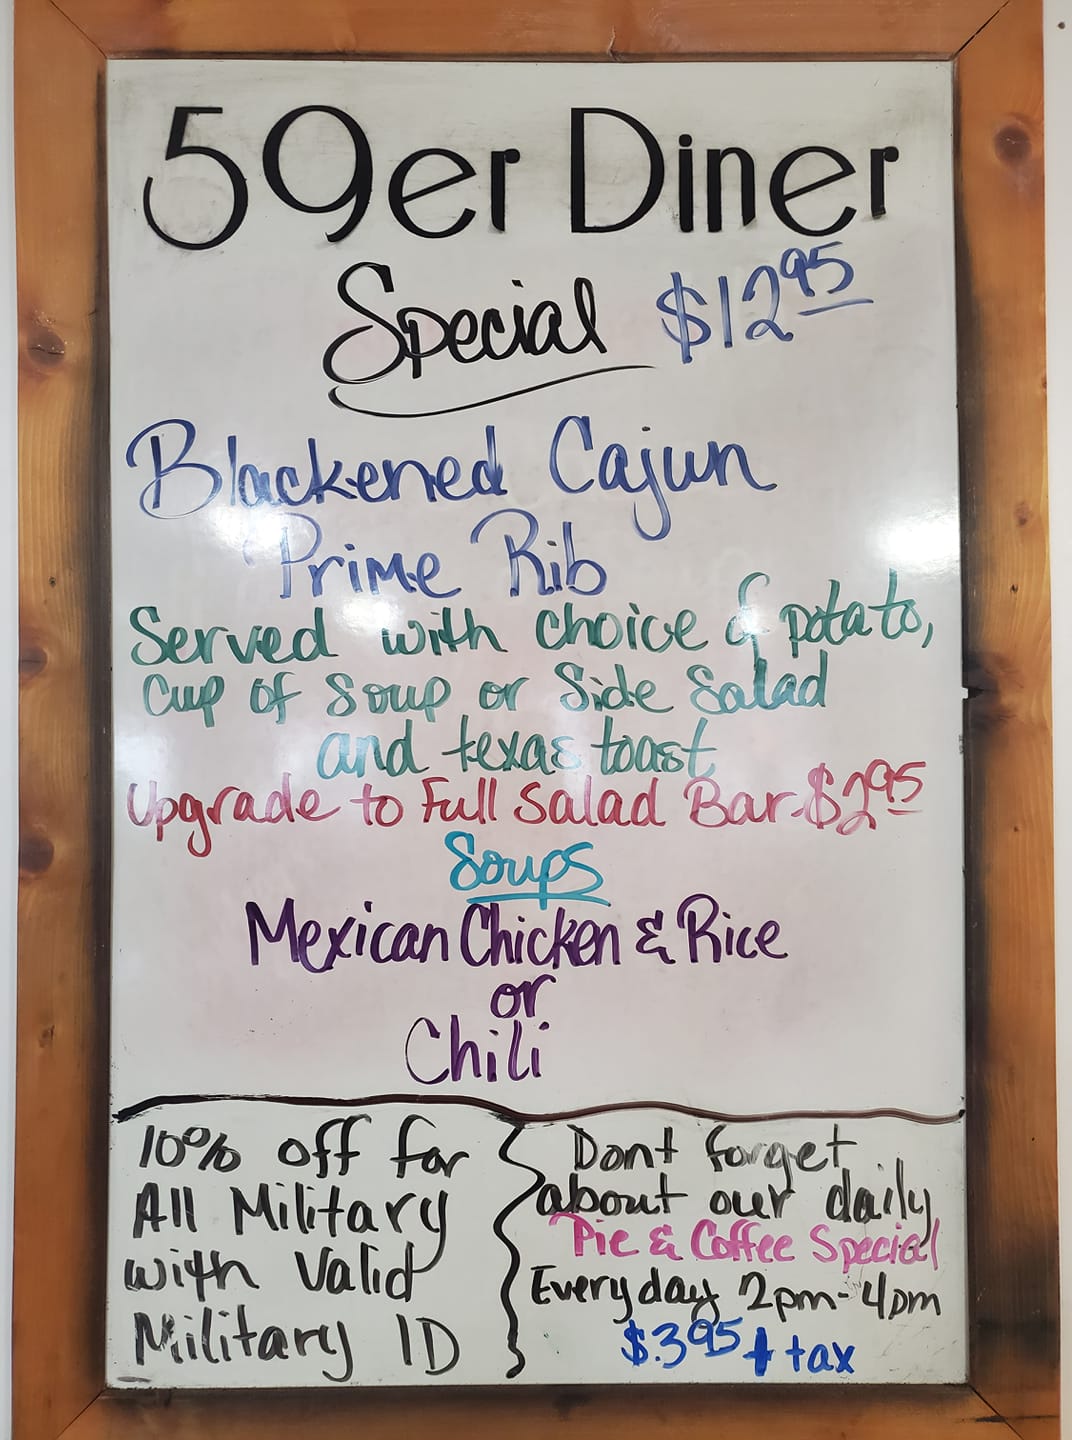 59er Diner
Special $12.95
Blackened Cajun
Prime Rib
Served with choice of potato,
Cup of Soup or Side Salad
and texas toast
Upgrade to Full Salad Bar-$2.95
Soups
Mexican Chicken & Rice
or
Chili
10% off for
All Military
with Valid
Military ID
Dont forget
about our daily
Pie & Coffee Special
Everyday 2pm-4pm
$3.95 + tax